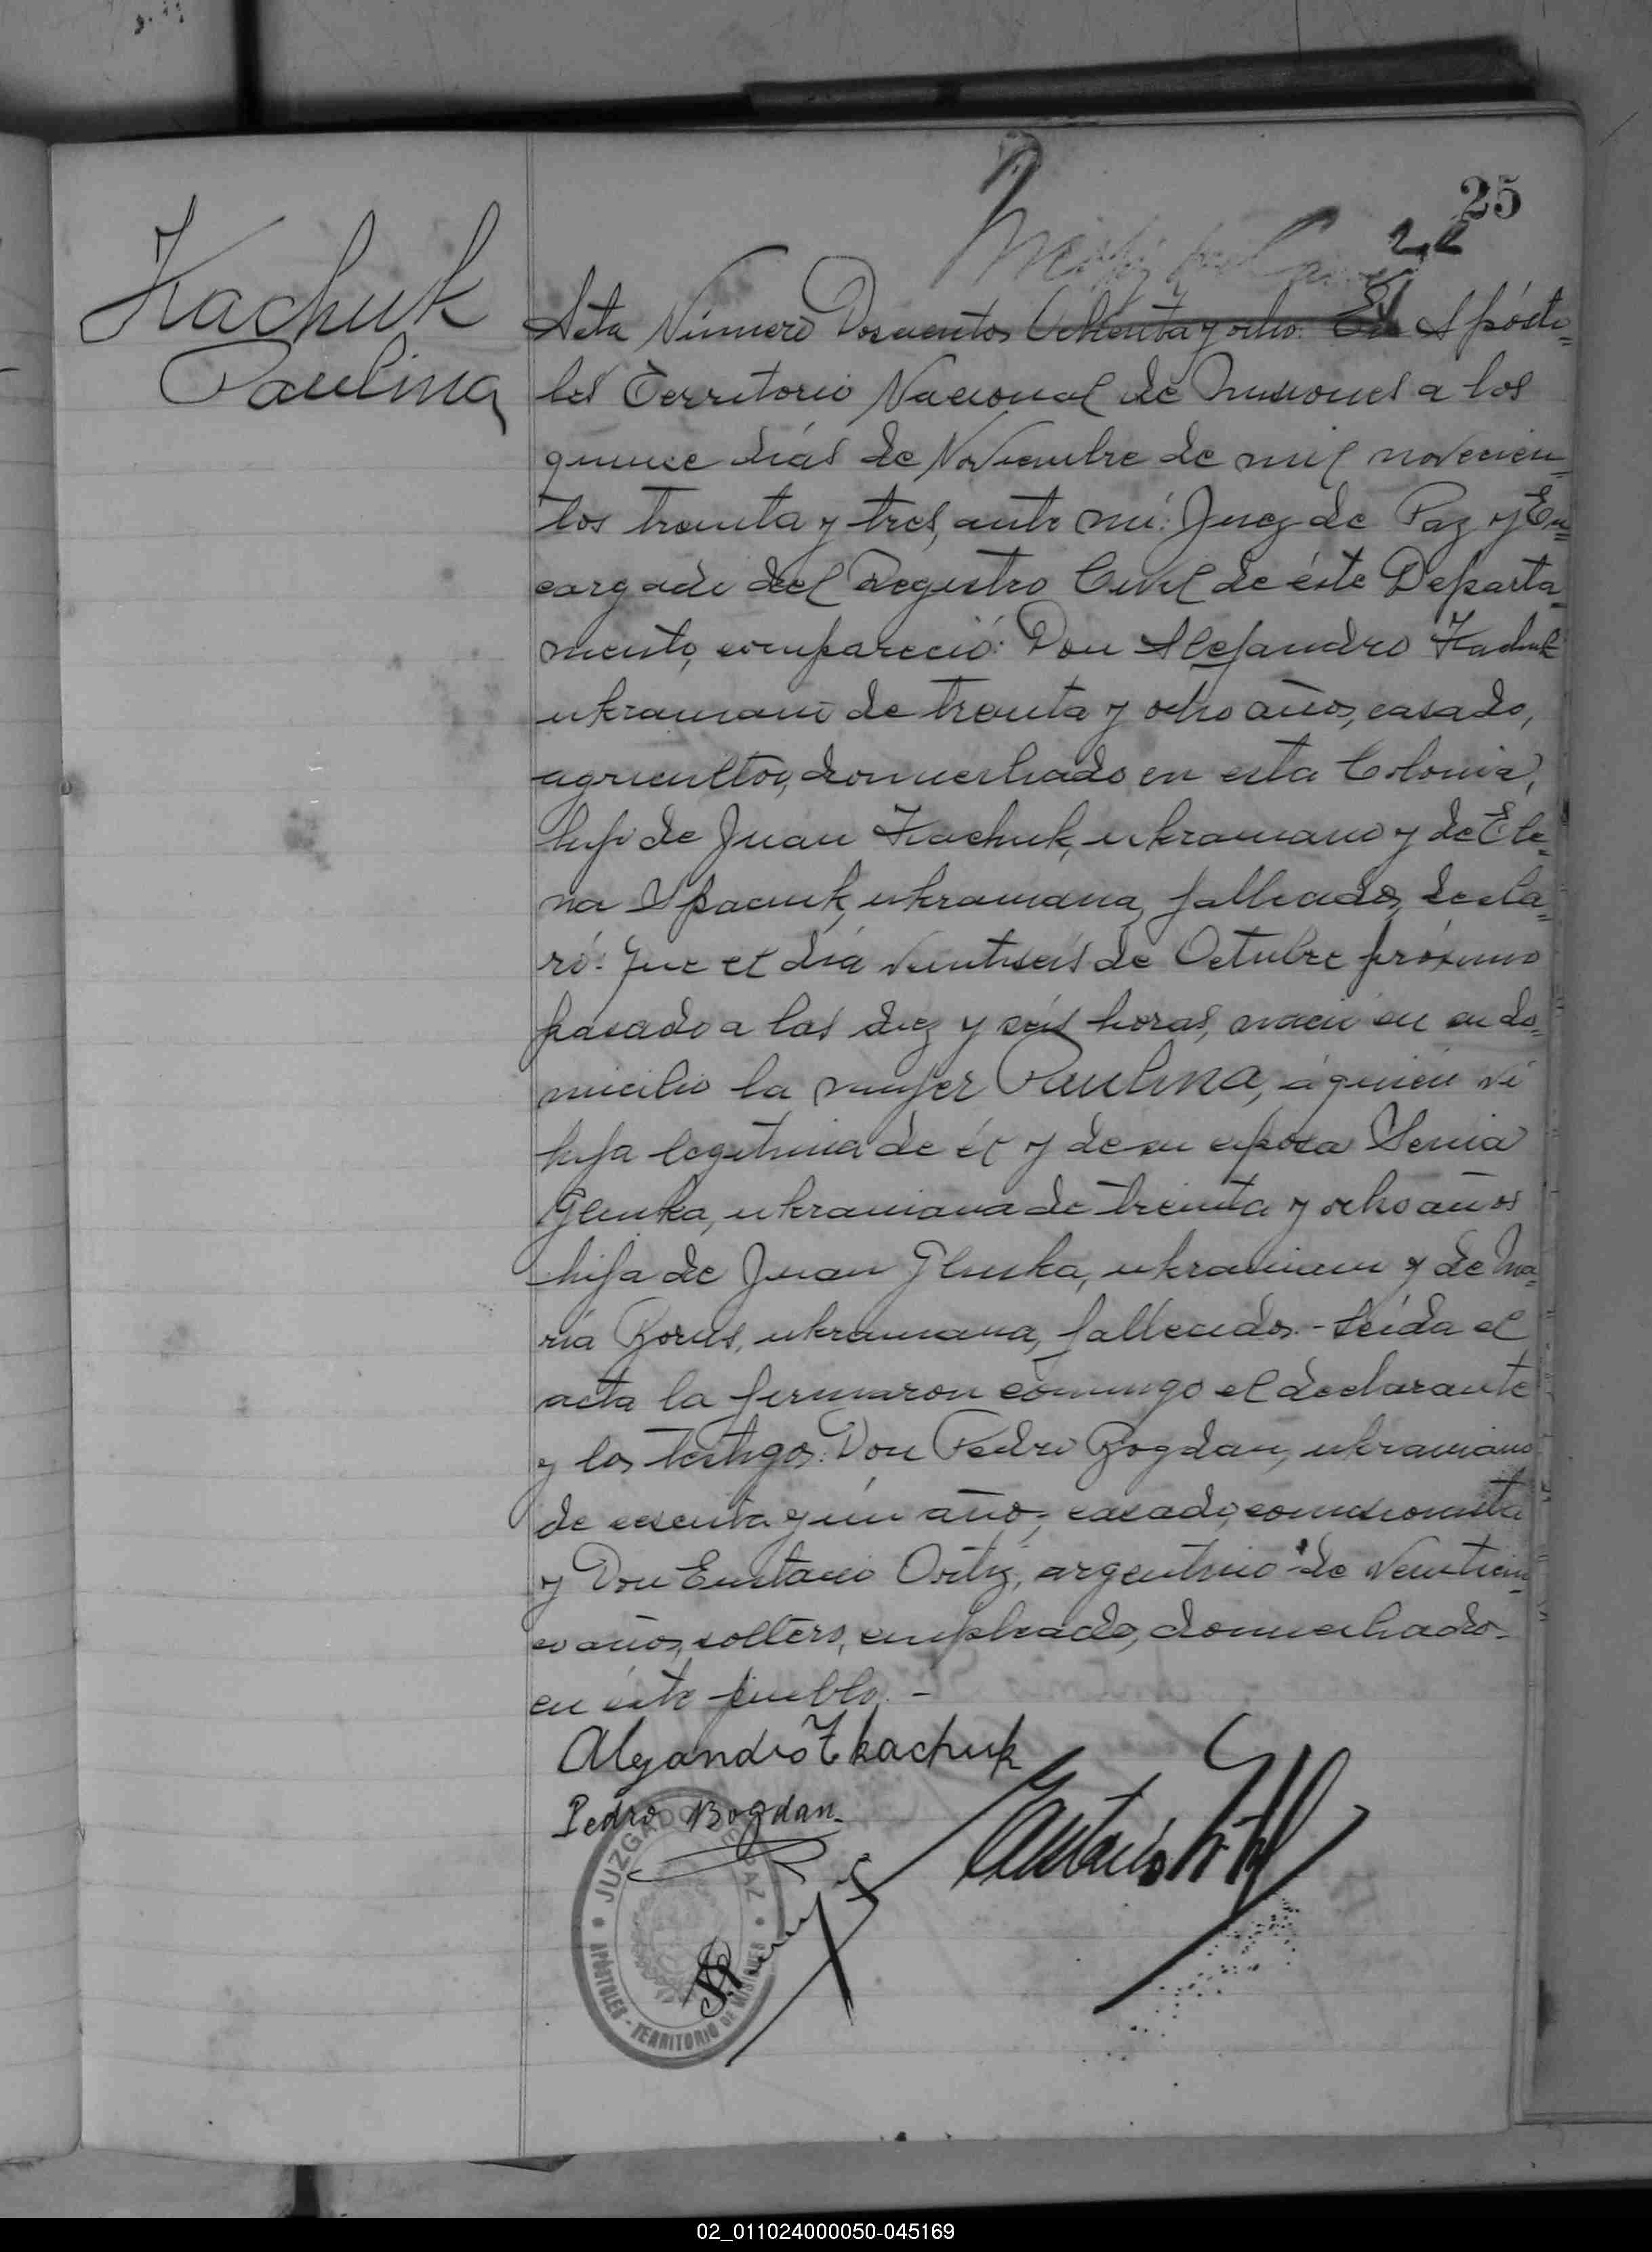 25
22
Tkachuk
Paulina
Acta Número Doscientos Ochenta y ocho. En Apósto=
les Territorio Nacional de Misiones a los
quince días de Noviembre de mil novecien=
tos treinta y tres, ante mí: Juez de Paz y En=
cargado del Registro Civil de éste Departa=
mento, compareció: Don Alejandro Tkachuk
ukraniano de treinta y ocho años, casado,
agricultor, domiciliado en esta Colonia,
hijo de Juan Tkachuk, ukraniano y de Ele=
na ukraniana, fallecidos, decla=
ró: Que el día veintiseis de Octubre próximo
pasado a las diez y seis horas, nació en su do=
micilio la mujer Paulina, á quién ví
hija legítima de él y de su esposa Senia
Glinka, ukraniana de treinta y ocho años
hija de Juan Glinka, ukraniano y de Ma=
ría Borus, ukraniana, fallecidos.- Leída el
acta la firmaron conmigo el declarante
y los testigos: Don Pedro Bogdan, ukraniano
de sesenta y un año, casado, comisionista
y Don Eustacio Ortiz, argentino de veinticin=
co años, soltero, empleado, domiciliados
en éste pueblo.-
Alejandro Tkachuk
Pedro Bogdan
Eustacio Ortiz
JUZGADO DE PAZ
APÓSTOLES - TERRITORIO DE MISIONES
02_011024000050-045169